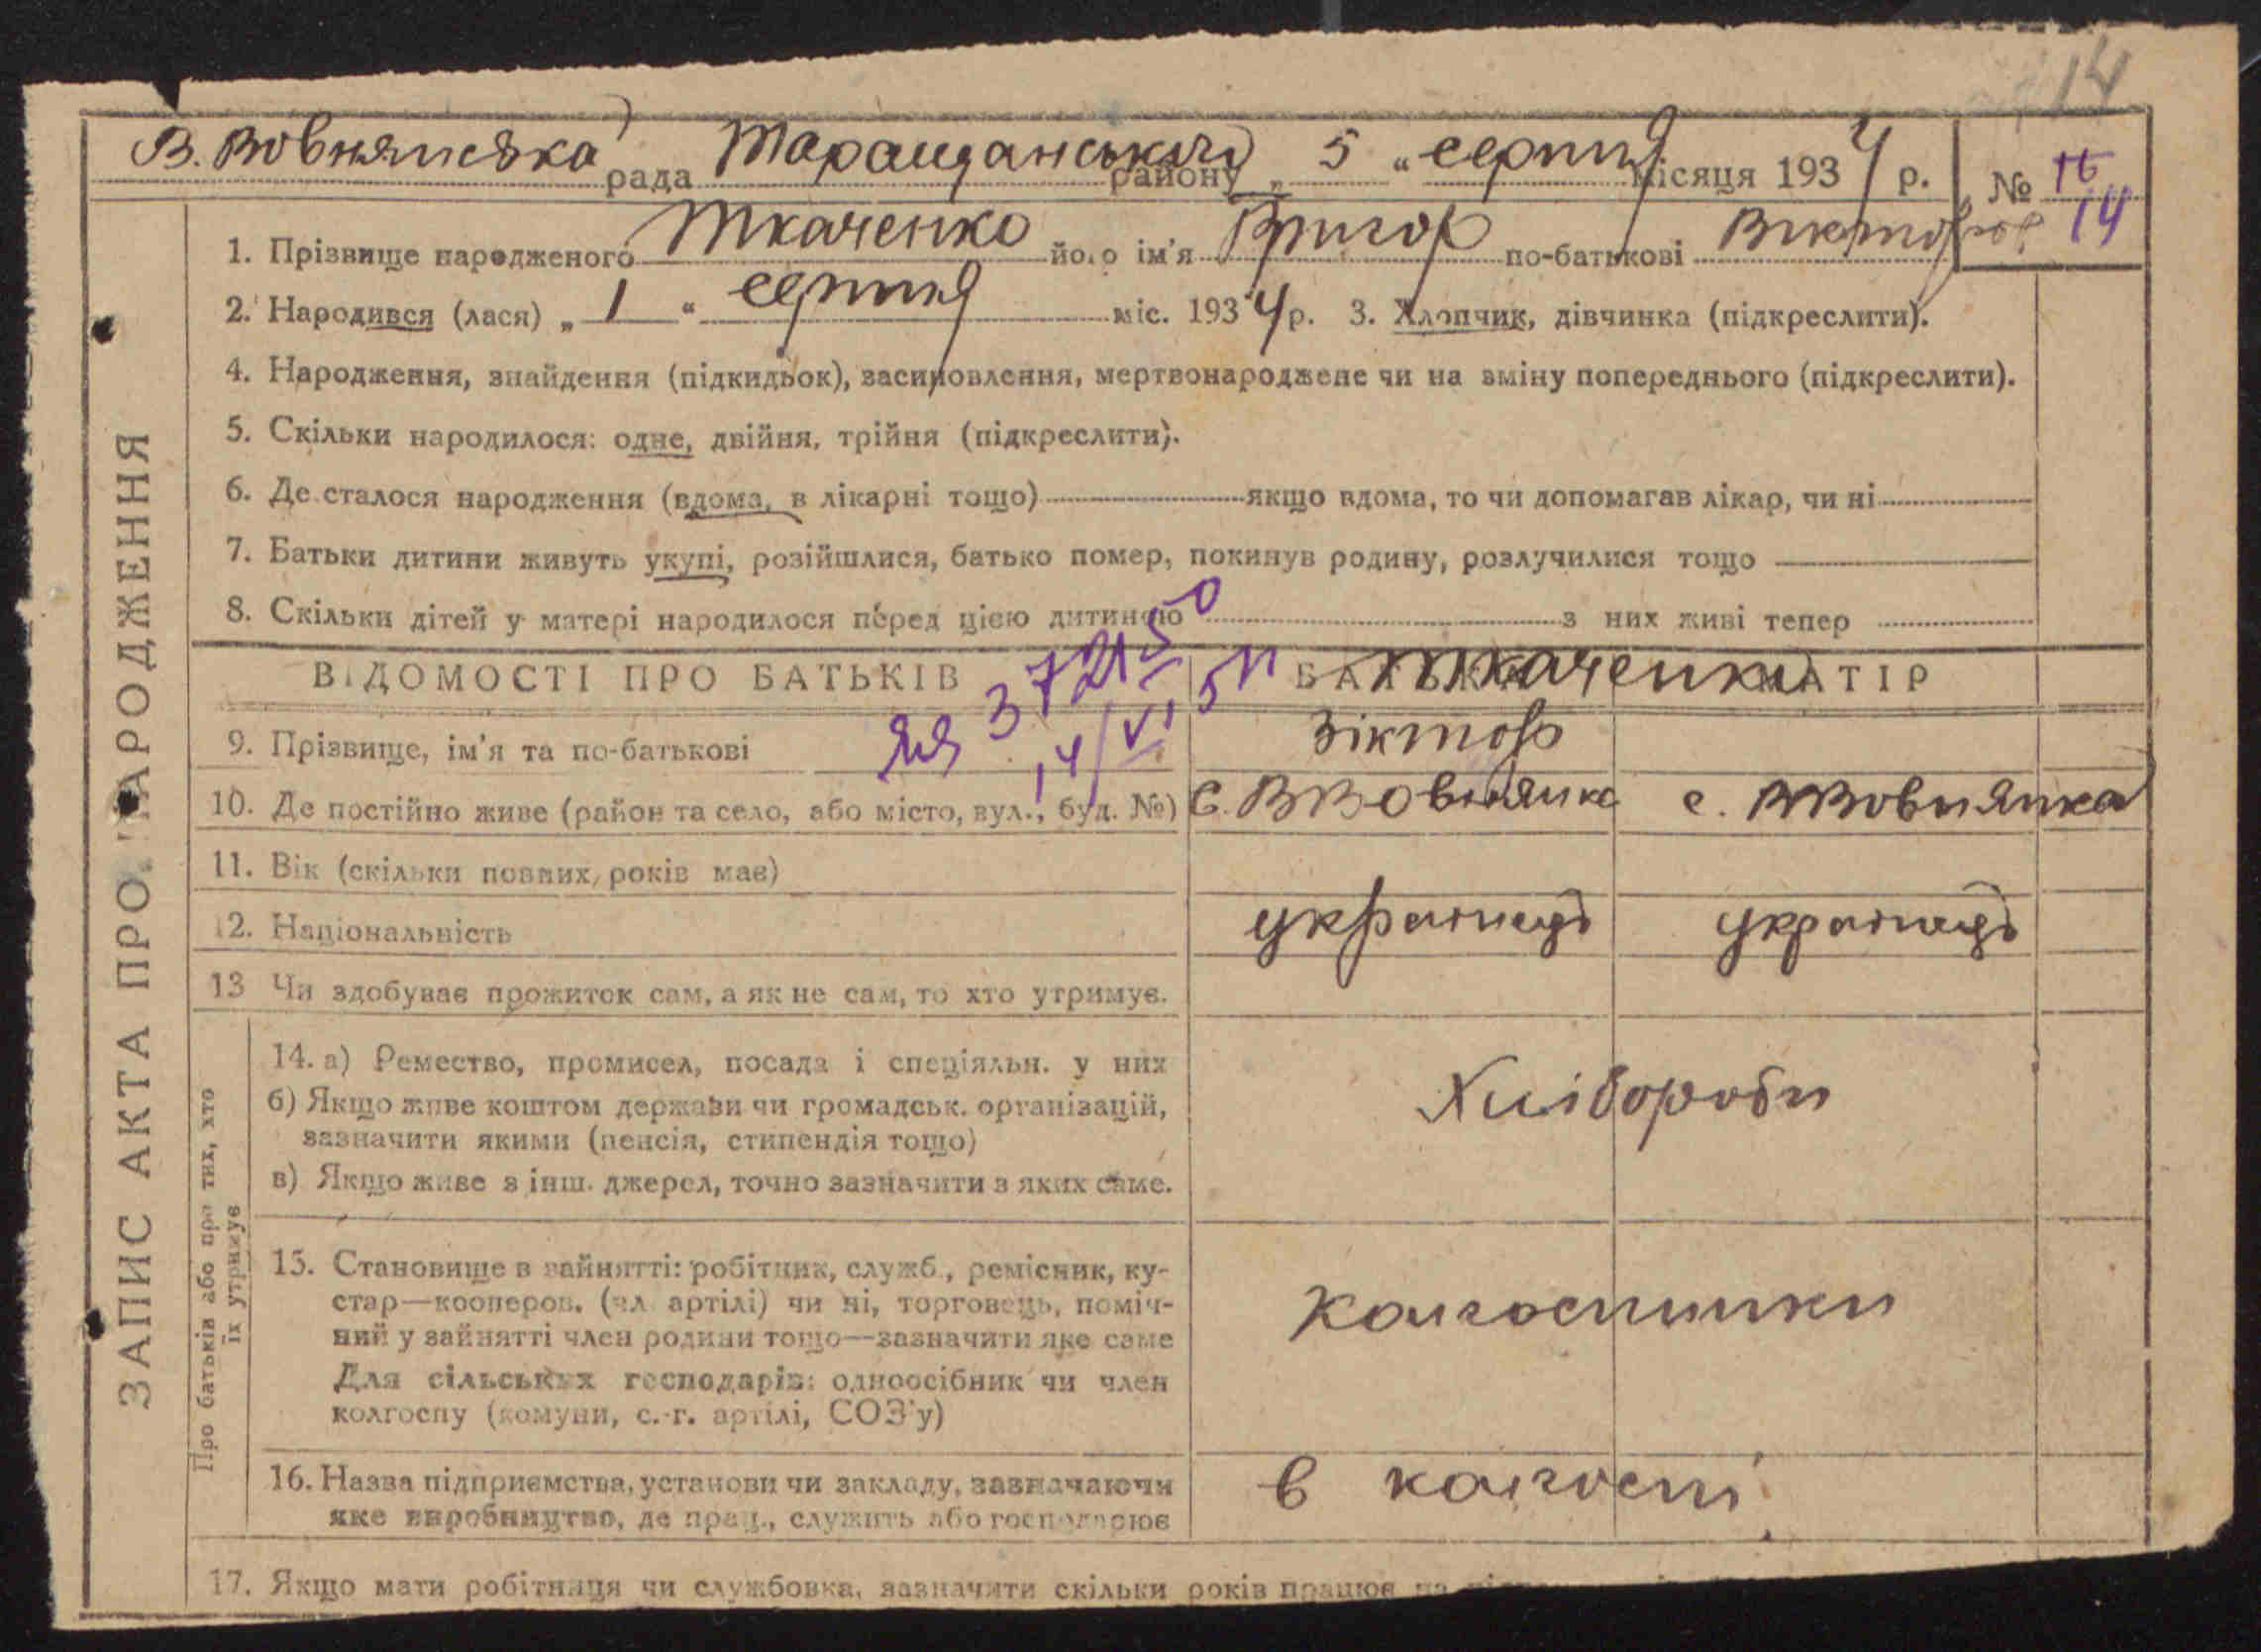 14
В. Вовнянська рада Таращанського району „ 5 “ серпня місяця 1934 р. № 16
14
1. Прізвище народженого Ткаченко його ім'я Григор по-батькові Вікторов
2. Народився (лася) „ 1 “ серпня міс. 1934 р. 3. Хлопчик, дівчинка (підкреслити).
4. Народження, знайдення (підкидьок), засиновлення, мертвонароджене чи на зміну попереднього (підкреслити).
5. Скільки народилося: одне, двійня, трійня (підкреслити).
6. Де сталося народження (вдома, в лікарні тощо) якщо вдома, то чи допомагав лікар, чи ні
7. Батьки дитини живуть укупі, розійшлися, батько помер, покинув родину, розлучилися тощо
8. Скільки дітей у матері народилося перед цією дитиною з них живі тепер
ВІДОМОСТІ ПРО БАТЬКІВ БАТЬКО МАТІР
Ткаченки
9. Прізвище, ім'я та по-батькові Віктор
10. Де постійно живе (район та село, або місто, вул., буд. №) с. ВВовнянка с. ВВовнянка
11. Вік (скільки повних років має)
12. Національність українці українці
13 Чи здобуває прожиток сам, а як не сам, то хто утримує.
14. а) Ремество, промисел, посада і спеціяльн. у них
б) Якщо живе коштом держави чи громадськ. організацій,
зазначити якими (пенсія, стипендія тощо)
в) Якщо живе з інш. джерел, точно зазначити з яких саме.
Хлібороби
15. Становище в зайнятті: робітник, служб., ремісник, ку-
стар—кооперов. (чл. артілі) чи ні, торговець, поміч-
ний у зайнятті член родини тощо—зазначити яке саме
Для сільських господарів: одноосібник чи член
колгоспу (комуни, с.-г. артілі, СОЗ'у)
Колгоспники
16. Назва підприємства, установи чи закладу, зазначаючи
яке виробництво, де прац., служить або господарює
в колгоспі
17. Якщо мати робітниця чи службовка, зазначити скільки років працює на
ЗАПИС АКТА ПРО НАРОДЖЕННЯ
Про батьків або про тих, хто
їх утримує